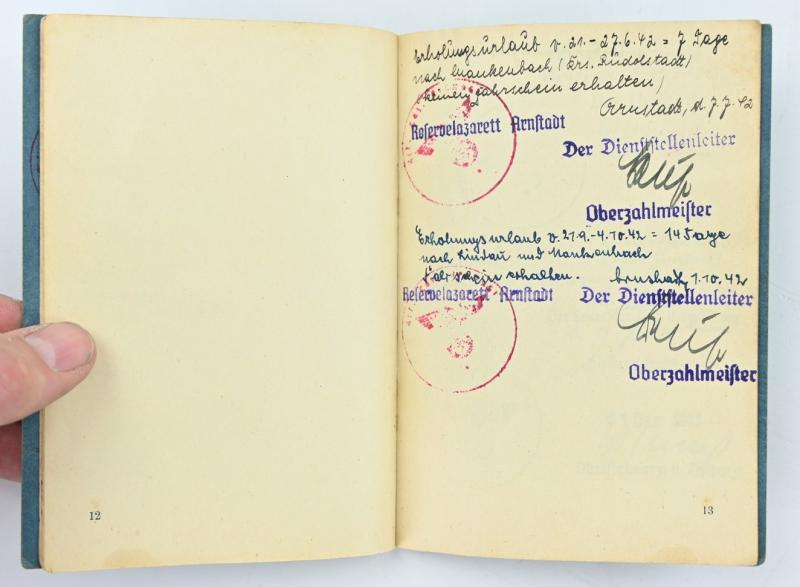 Erholungsurlaub v. 21.-27.6.42 = 7 Tage
nach Mankenbach (Krs. Rudolstadt)
(keinen Fahrschein erhalten)
Arnstadt, d. 7.7.42
Reservelazarett Arnstadt
Der Dienststellenleiter
Oberzahlmeister
Erholungsurlaub v. 21.9.-4.10.42 = 14 Tage
nach Lindau und Mankenbach
Fahrschein erhalten. Arnstadt, 1.10.42
Reservelazarett Arnstadt Der Dienststellenleiter
Oberzahlmeister
12
13